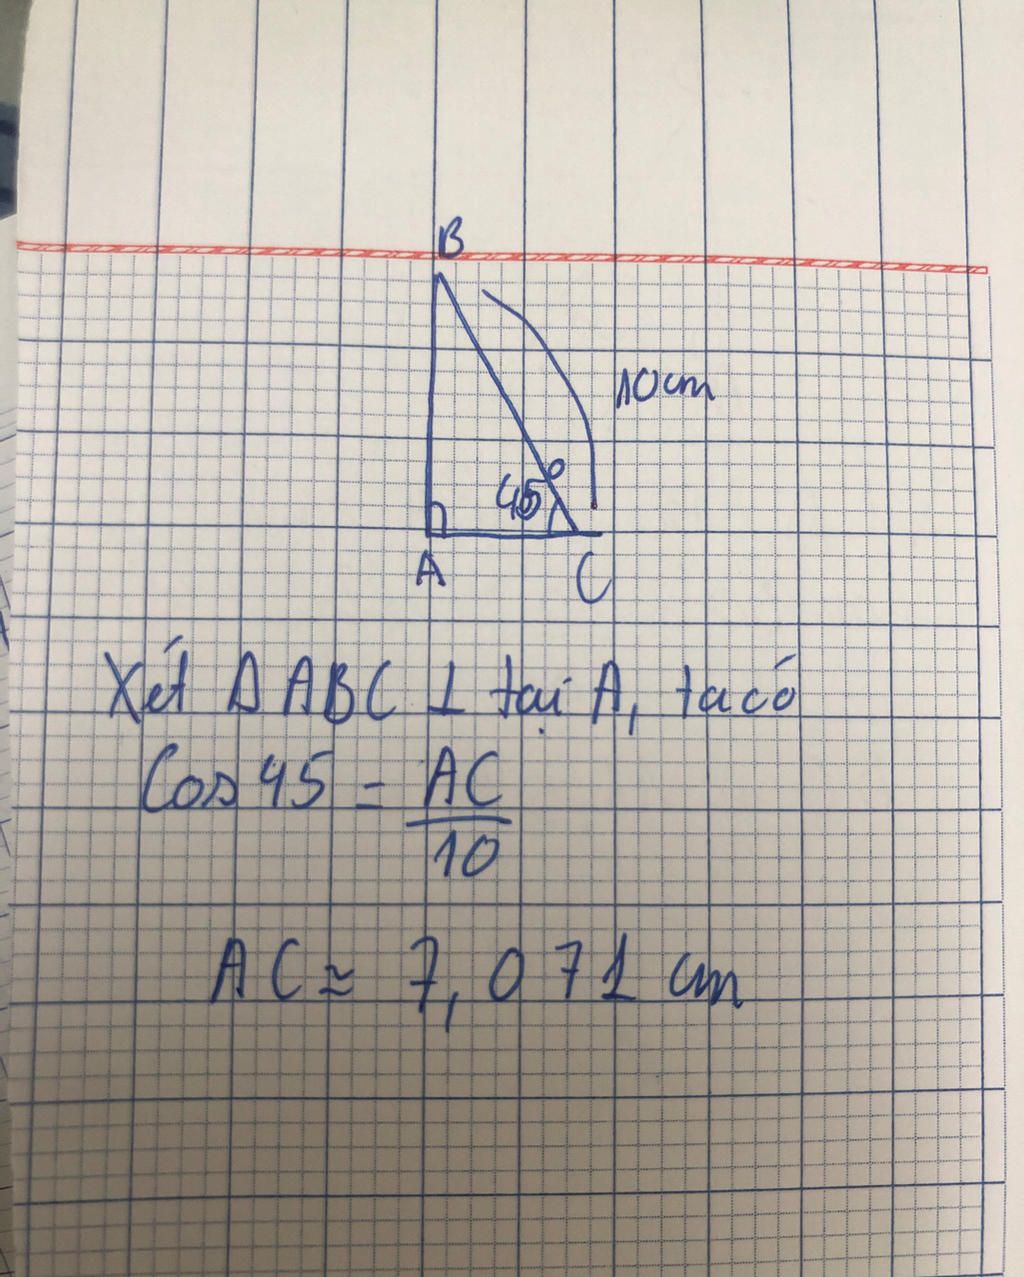 B
10cm
45°
A
C
Xét Δ ABC ⊥ tại A, ta có
Cos 45 = AC
10
AC ≈ 7,071 cm